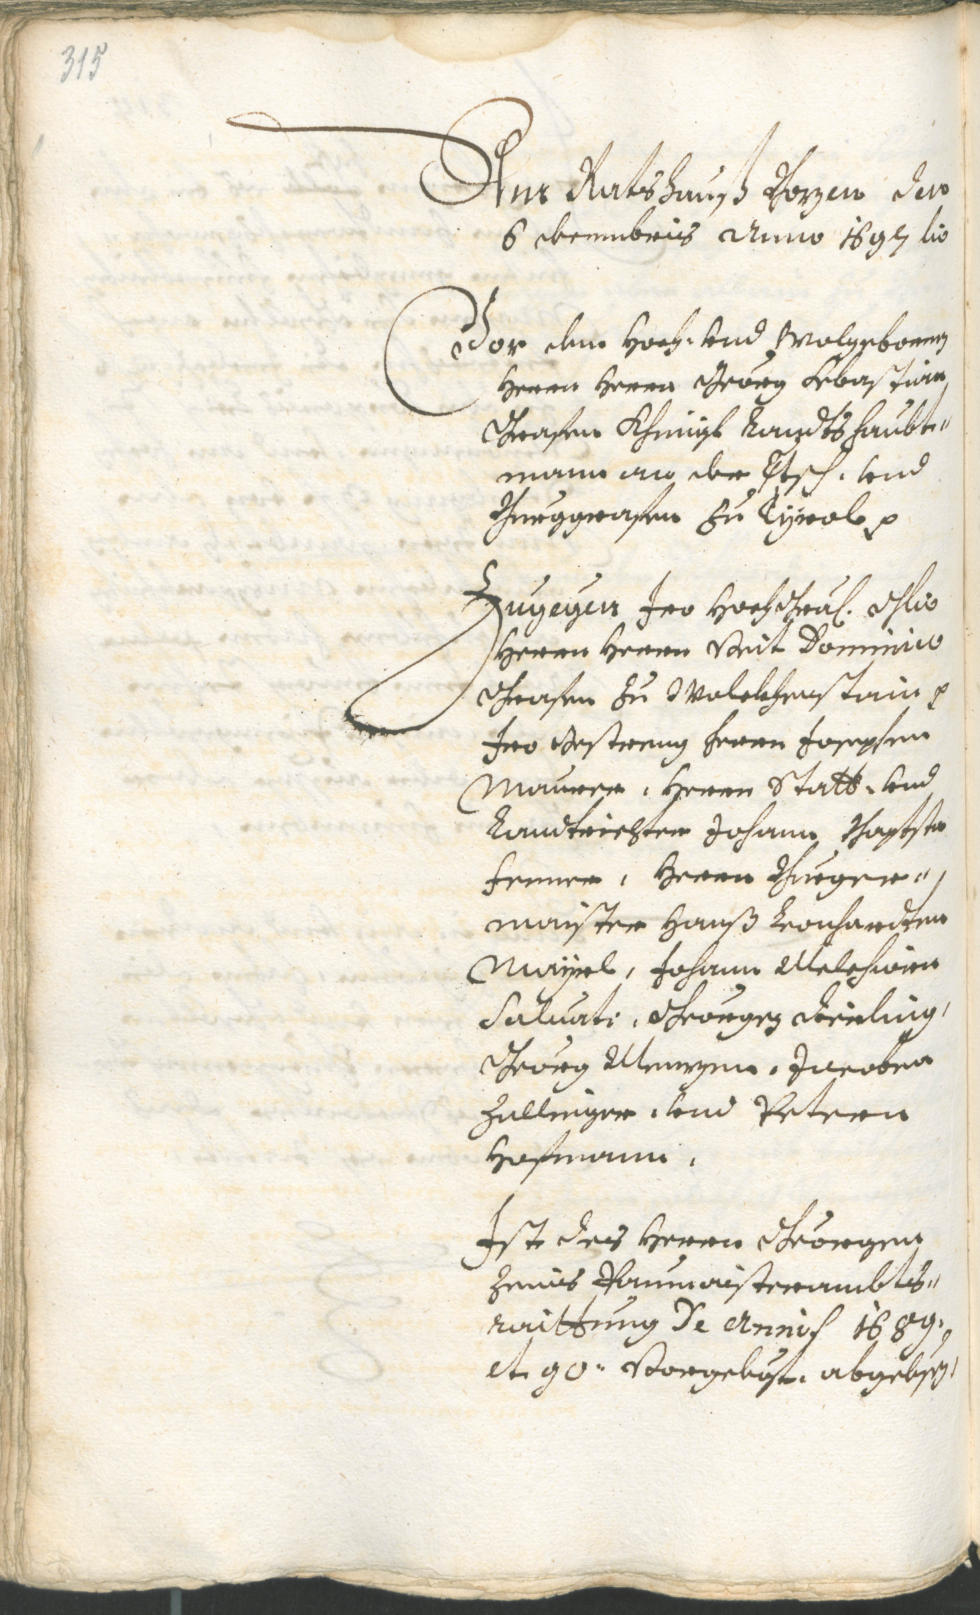 315
Am Ratshauß Pozen den
6 decembris Anno 1695 ##
Vor dem Hoch- und Wolgebornen
Herrn Herrn Georg Sebastian
Grafen Khünigl Landtshaubt-
mann an der Etsch. und
Purggrafen zu Tyrol p
Zugegen Iro Hochgräf.
Herrn Herrn Veit Dominico
Grafen zu Wolckhenstain p
Iro Gestreng herrn Josephen
Maurer, Herrn Statt- und
Landtrichter Johann Baptista
Fenner, Herrn Purger-
maister Hanß Leonhardten
Mayrl, Johann Melchiorn
Salvati, Georgen
Georg Menzen, Jacoben
Zallinger, und Petern
Hofmann.
Ist des Herrn Georgen
Zenis Paumaisterambts-
raittung De Annis 1689.
et. 90. Vorgelegt. abgelesen,